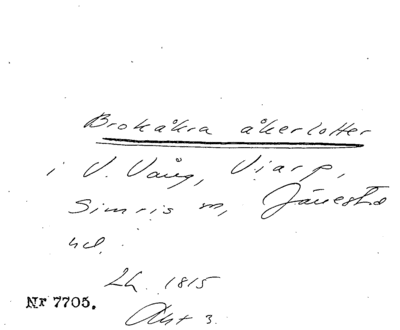 Brokåkra åkerlotter
i V. Vång, Viarp,
Simris m, Järrestad
hd.
Lh. 1815
Akt 3.
Nr 7705.